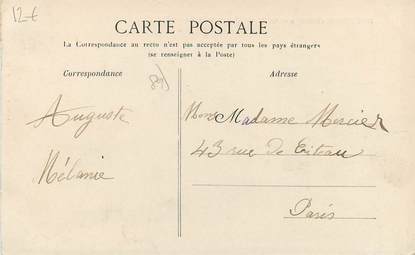 12€
CARTE POSTALE
La Correspondance au recto n'est pas acceptée par tous les pays étrangers
(se renseigner à la Poste)
Correspondance
Adresse
Auguste
Mélanie
Madame Mercier
43 rue de
Paris